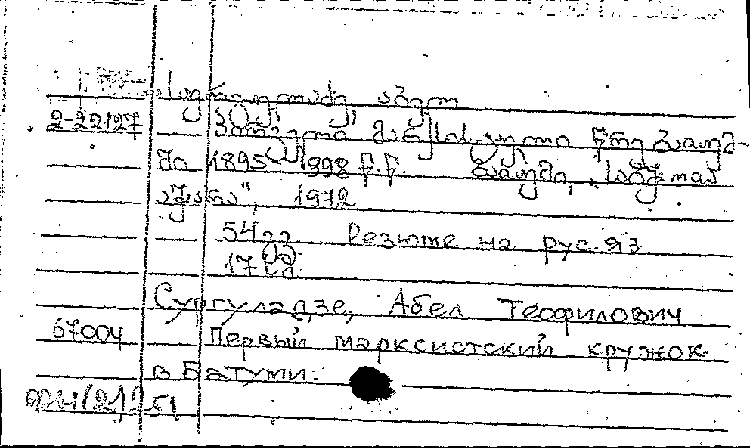 სურგულაძე, აბელ
2-22127 პირველი მარქსისტული წრე ბათუმ-
ში 1895 1998 წ.წ ბათუმი, „საბჭოთა
აჭარა", 1972
54 გვ Резюме на рус. яз
17
Сургуладзе, Абел Теофилович
67004 Первый марксистский кружок
в Батуми.